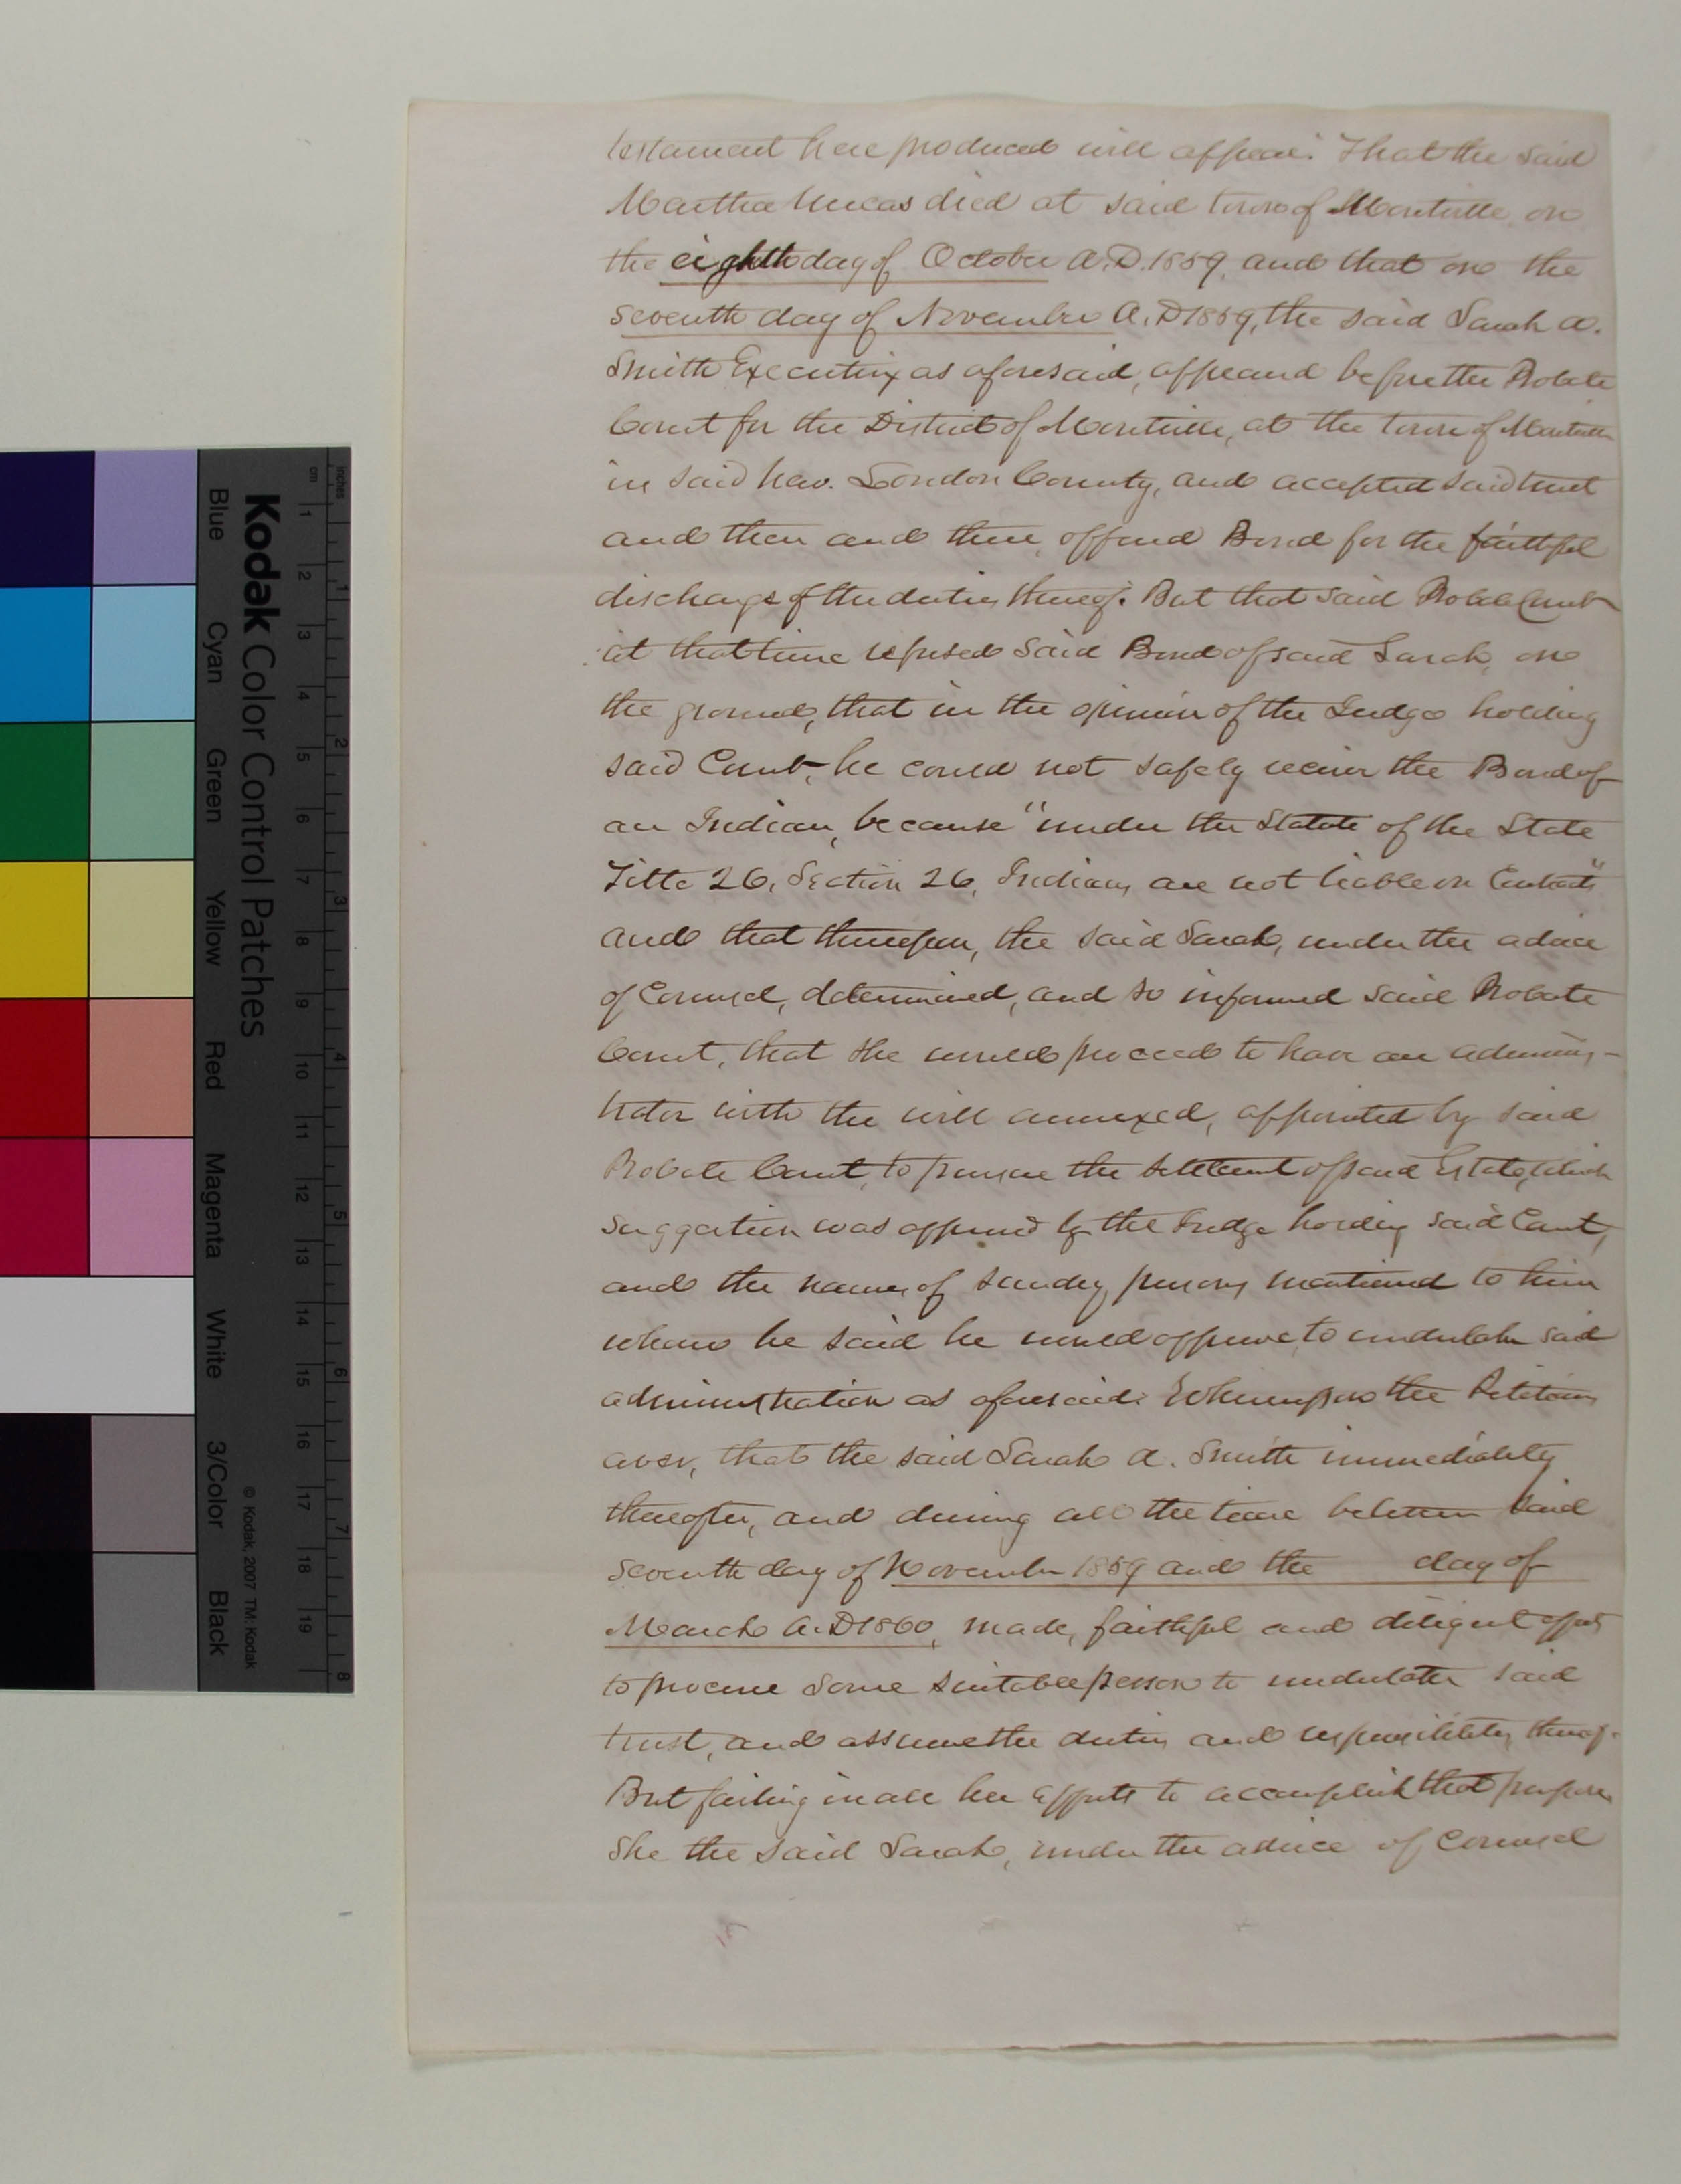 testament here produced will appear. That the said
Martha Uncas died at said town of Montville on
the eighth day of October A.D. 1859, and that on the
seventh day of November A.D 1859, the said Sarah A.
Smith Executrix as aforesaid, appeared before the Probate
Court for the District of Montville, at the town of Montville
in said New London County, and accepted said trust
and then and there offered Bond for the faithful
discharge of the duties thereof. But that said Probate Court
at that time refused said Bond of said Sarah, on
the ground, that in the opinion of the Judge holding
said Court, he could not safely receive the Bond of
an Indian, because "under the Statute of the State
Title 26, Section 26, Indians are not liable on Contracts"
and that thereupon, the said Sarah, under the advice
of Counsel, determined, and so informed said Probate
Court, that she would proceed to have an adminis-
trator with the will annexed, appointed by said
Probate Court, to pursue the settlement of said Estate, which
suggestion was approved by the Judge holding said Court,
and the names of sundry persons mentioned to him
whom he said he would approve, to undertake said
administration as aforesaid. Whereupon the Petitioners
aver, that the said Sarah A. Smith immediately
thereafter, and during all the time between said
seventh day of November 1859 and the day of
March A.D 1860, made, faithful and diligent efforts
to procure some suitable person to undertake said
trust, and assume the duties and responsibility thereof.
But failing in all her efforts to accomplish that purpose
She the said Sarah, under the advice of Counsel
Kodak Color Control Patches
© Kodak, 2007 TM: Kodak
Blue Cyan Green Yellow Red Magenta White 3/Color Black
inches 1 2 3 4 5 6 7 8
cm 1 2 3 4 5 6 7 8 9 10 11 12 13 14 15 16 17 18 19